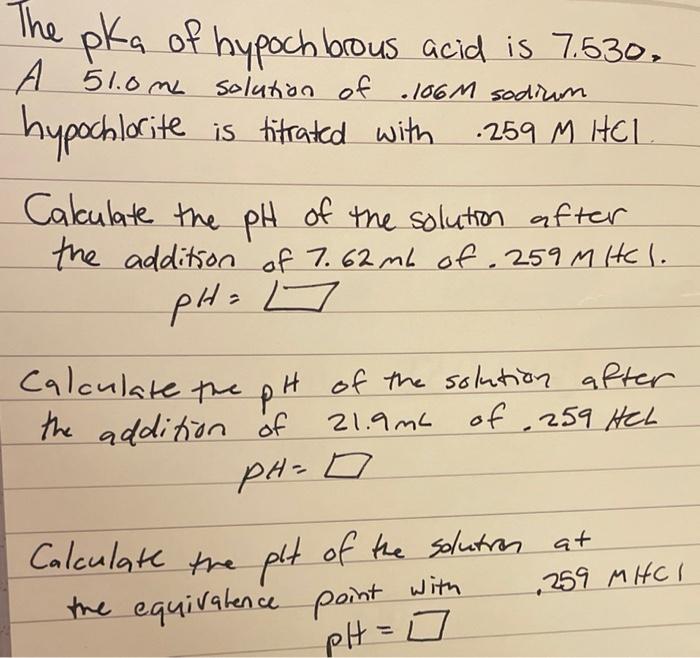 The pKa of hypochlorous acid is 7.530.
A 51.0 mL solution of .106M sodium
hypochlorite is titrated with .259 M HCl
Calculate the pH of the solution after
the addition of 7.62 mL of .259 M HCl.
pH =
Calculate the pH of the solution after
the addition of 21.9 mL of .259 HCL
pH =
Calculate the pH of the solution at
the equivalence point with .259 M HCl
pH =